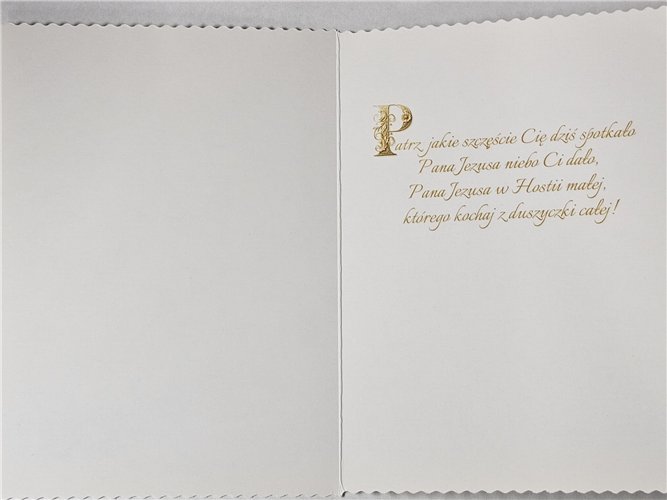 Patrz jakie szczęście Cię dziś spotkało
Pana Jezusa niebo Ci dało,
Pana Jezusa w Hostii małej,
którego kochaj z duszyczki całej!